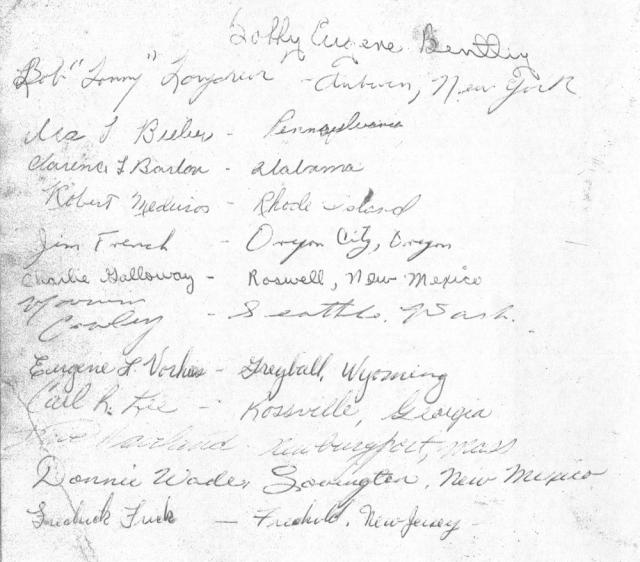 Bobby Eugene Bentley
Bob "Lonny" - Auburn, New York
Bieber - Pennsylvania
Clarence L Barlow - Alabama
Robert Medeiros - Rhode Island
Jim French - Oregon City, Oregon
Charlie Galloway - Roswell, New Mexico
Cowley - Seattle, Wash.
Eugene L. - Greyball, Wyoming
Carl R. Lee - Rossville, Georgia
Newburyport, Mass
Donnie Wade, Lovington, New Mexico
- Freehold, New Jersey